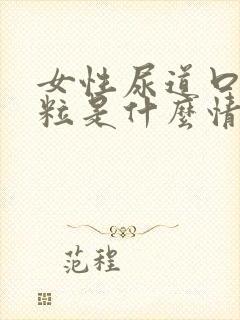 女性尿道口
粒是什麼情
范程